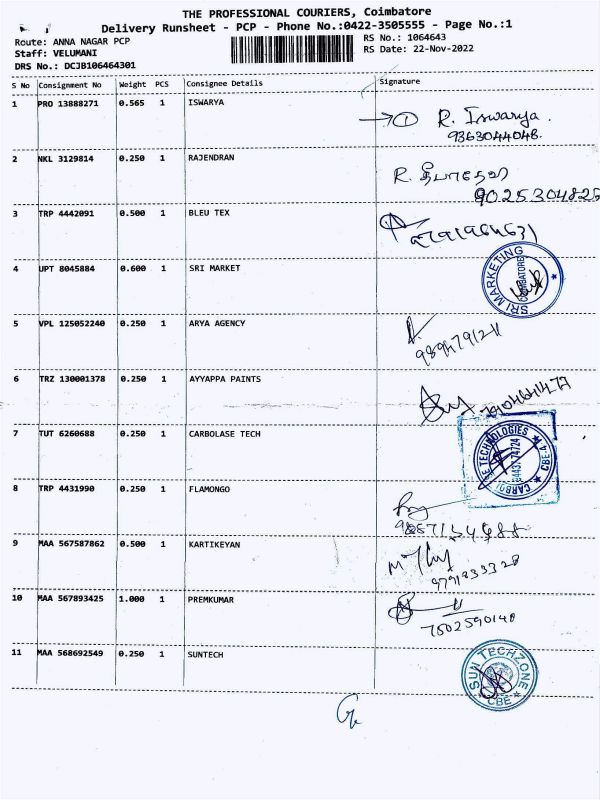 THE PROFESSIONAL COURIERS, Coimbatore
Delivery Runsheet - PCP - Phone No.:0422-3505555 - Page No.:1
Route: ANNA NAGAR PCP
Staff: VELUMANI
DRS No.: DCJB106464301
RS No.: 1064643
RS Date: 22-Nov-2022
S No Consignment No Weight PCS Consignee Details Signature
1 PRO 13888271 0.565 1 ISWARYA
1 R. Iswarya.
9363044048.
2 NKL 3129814 0.250 1 RAJENDRAN
R.
9025304826
3 TRP 4442091 0.500 1 BLEU TEX
4 UPT 8045884 0.600 1 SRI MARKET
SRI MARKETING
COIMBATORE
5 VPL 125052240 0.250 1 ARYA AGENCY
6 TRZ 130001378 0.250 1 AYYAPPA PAINTS
7 TUT 6260688 0.250 1 CARBOLASE TECH
8 TRP 4431990 0.250 1 FLAMONGO
9 MAA 567587862 0.500 1 KARTIKEYAN
10 MAA 567893425 1.000 1 PREMKUMAR
7502590148
11 MAA 568692549 0.250 1 SUNTECH
SUN TECHZONE
CBE